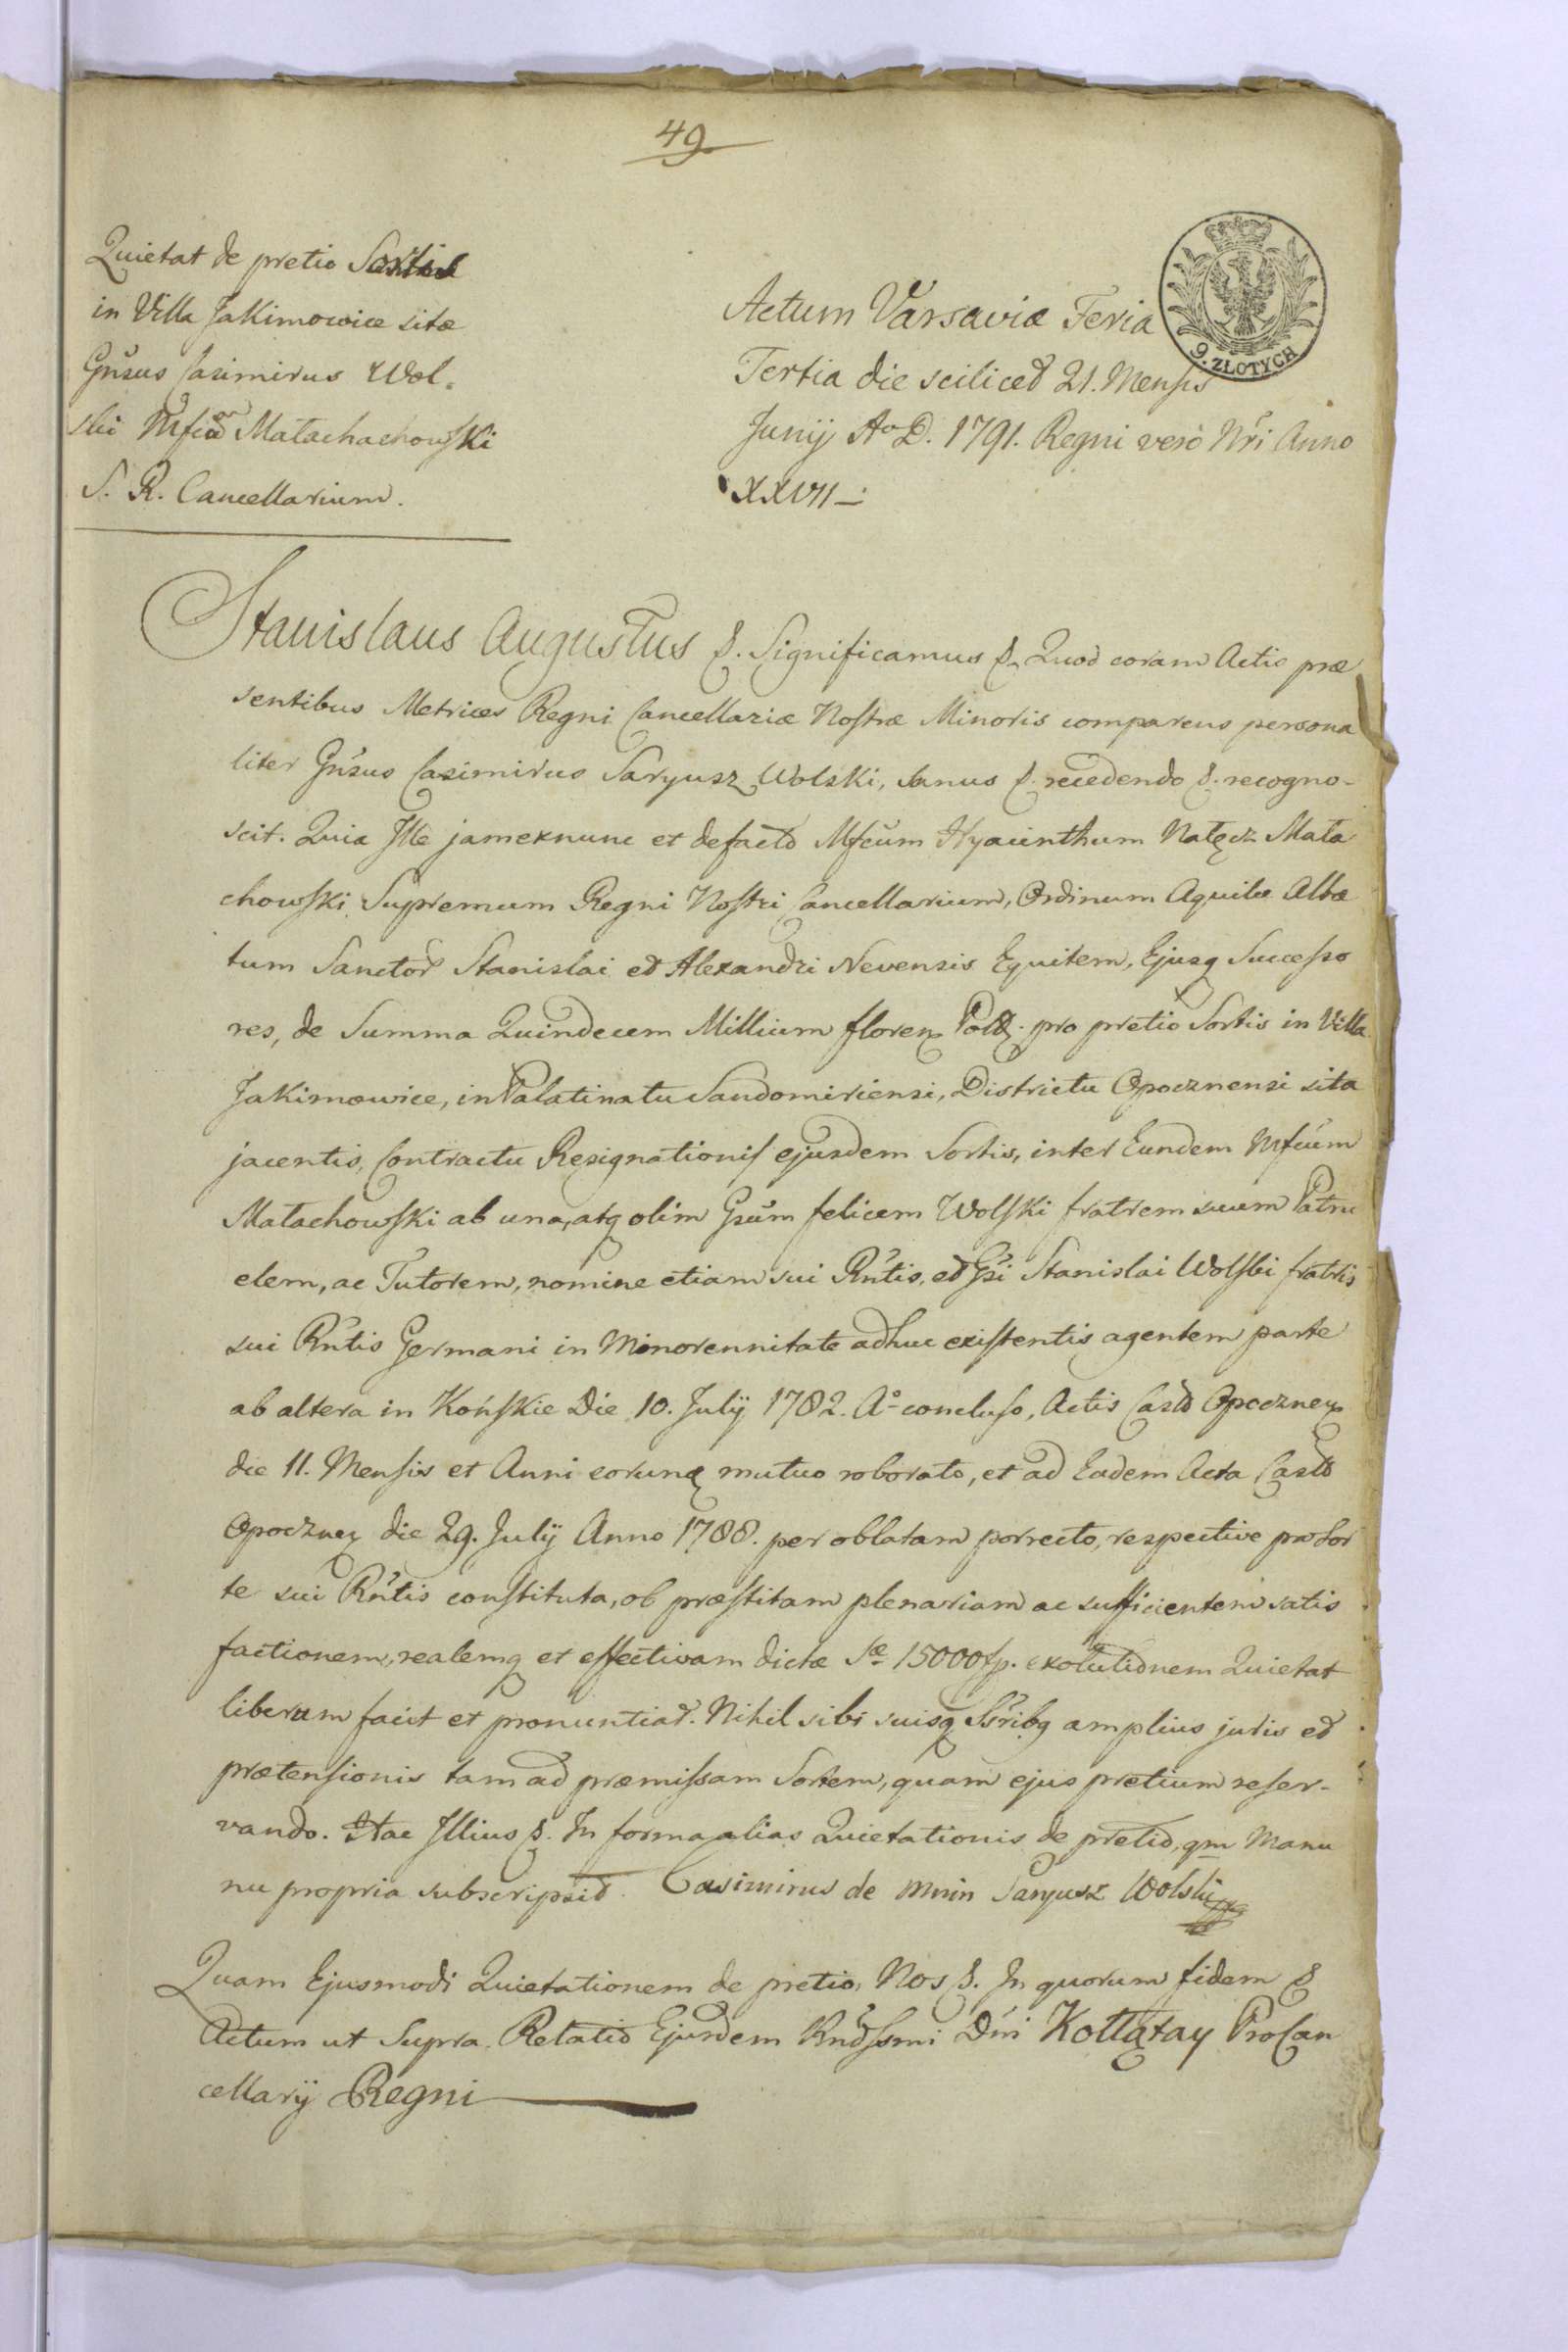 49
Quietat de pretio Sortis
in Villa Jakimowice sitæ
Gnsus Casimirus Wol=
ski Mfcum Matachachowski
S. R. Cancellarium.
9. ZŁOTYCH
Actum Varsaviæ Feria
Tertia die scilicet 21. Mensis
Junij Ao D. 1791. Regni verò Nri Anno
XXVII
Stanislaus Augustus &. Significamus &. Quod coram Actis præ
sentibus Metrices Regni Cancellariæ Nostræ Minoris comparens persona
liter Gnsus Casimirus Saryusz Wolski, sanus &. recedendo &. recogno-
scit. Quia Ille jamexnunc et defacto Mfcum Hyacinthum Nałęcz Mała
chowski Supremum Regni Nostri Cancellarium, Ordinum Aquilæ Albæ
tum Sanctor Stanislai et Alexandri Nevensis Equitem, Ejusq Successo
res, de Summa Quindecem Millium floren Poll. pro pretio Sortis in Villa
Jakimowice, in Palatinatu Sandomiriensi, Districtu Opocznensi sita
jacentis, Contractu Resignationis ejusdem Sortis, inter Eundem Mfcum
Małachowski ab una, atq olim Gsum felicem Wolski fratrem suum Patru
elem, ac Tutorem, nomine etiam sui Rntis, et Gsi Stanislai Wolski fratris
sui Rntis Germani in Minorennitate adhuc existentis agentem parte
ab altera in Końskie Die 10. Julij 1782. Ao concluso, Actis Castr Opocznen
die 11. Mensis et Anni eorund mutuo roborato, et ad Eadem Acta Castr
Opocznen die 29. Julij Anno 1788. per oblatam porrecto, respective pro Sor
te sui Rntis constituta, ob præstitam plenariam ac sufficientem satis
factionem, realemq et effectivam dictæ Sæ 15000 fp. exolutionem Quietat
liberum facit et pronuntiat. Nihil sibi suisq Ssribq amplius juris et
prætensionis tam ad præmissam Sortem, quam ejus pretium reser-
vando. Hac Illius &. In forma alias Quietationis de pretio, qm Manu
nu propria subscripsit. Casimirus de mnin Saryusz Wolski
Quam Ejusmodi Quietationem de pretio, Nos &. In quorum fidem &
Actum ut Supra. Relatio Ejusdem Rndssmi Dni Kołłątay ProCan
cellarij Regni